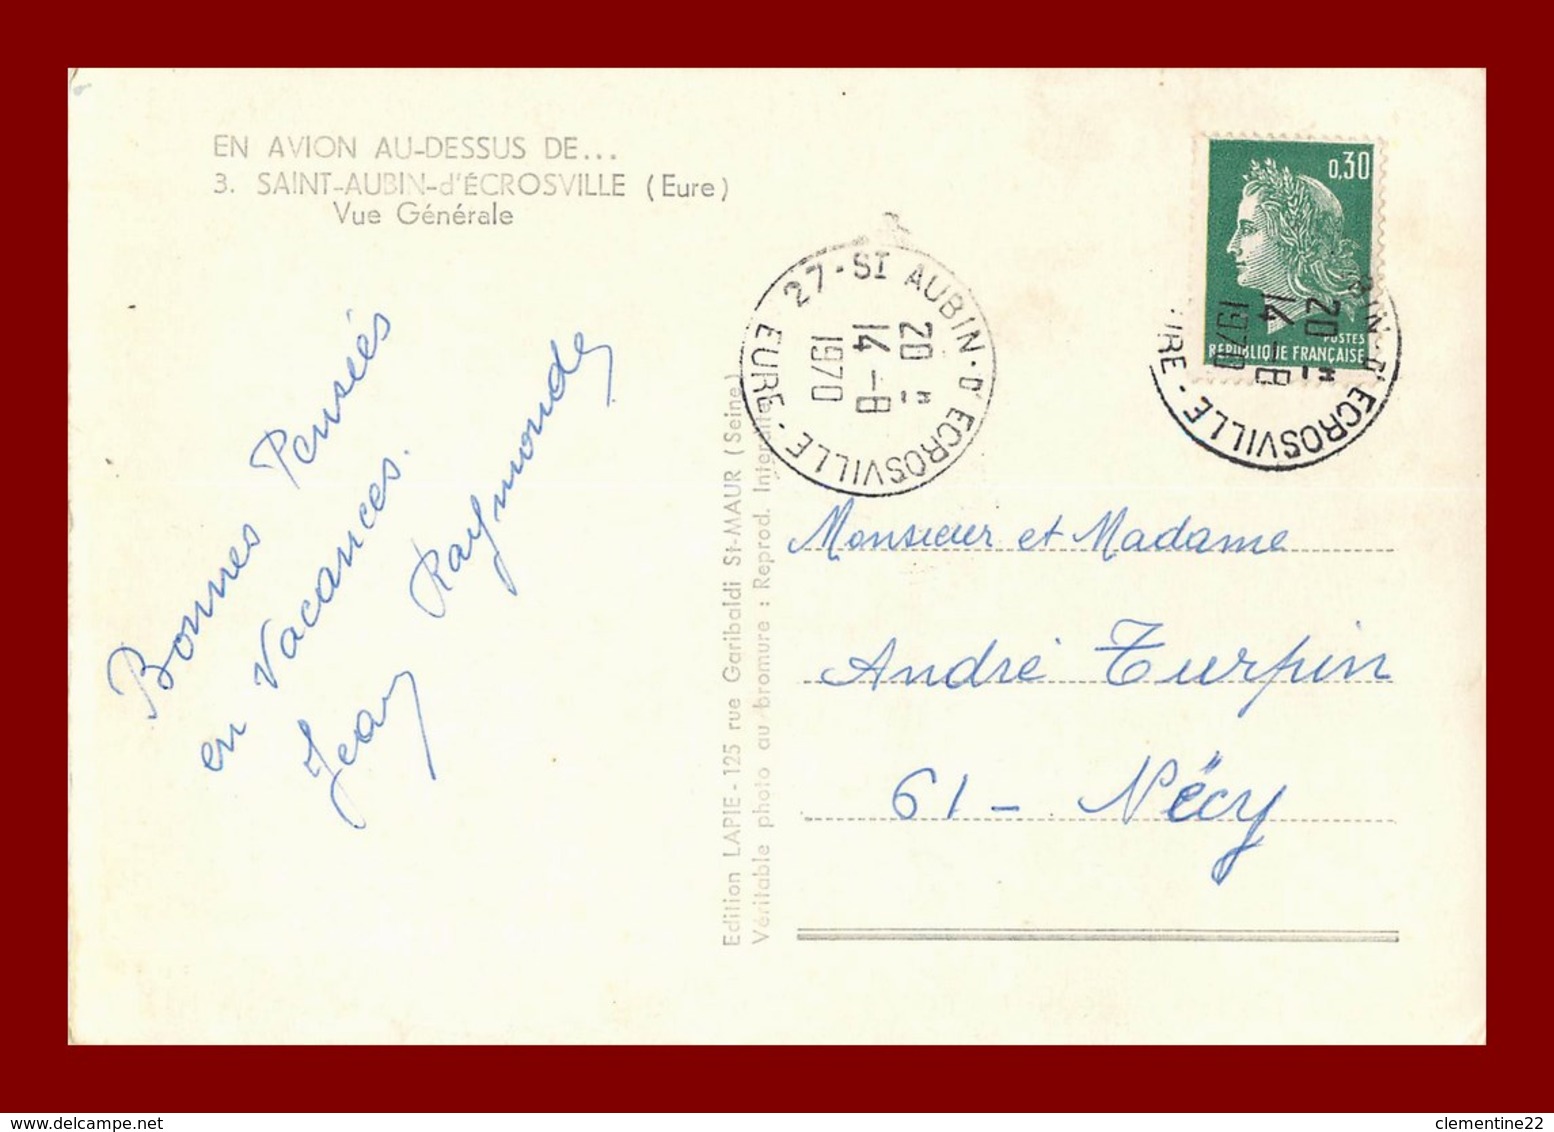 EN AVION AU-DESSUS DE...
3. SAINT-AUBIN-d'ÉCROSVILLE (Eure)
Vue Générale
Bonnes Pensées
en Vacances.
Jean Raymonde
Edition LAPIE - 125 rue Garibaldi St-MAUR (Seine)
Véritable photo au bromure : Reprod. Interdite
27 - ST AUBIN-D'ECROSVILLE - EURE -
20 H
14 - 8
1970
0,30
POSTES
REPUBLIQUE FRANÇAISE
BIN-D'ECROSVILLE - URE
20 H
14 - 8
1970
Monsieur et Madame
André Turpin
61 - Nécy
clementine22